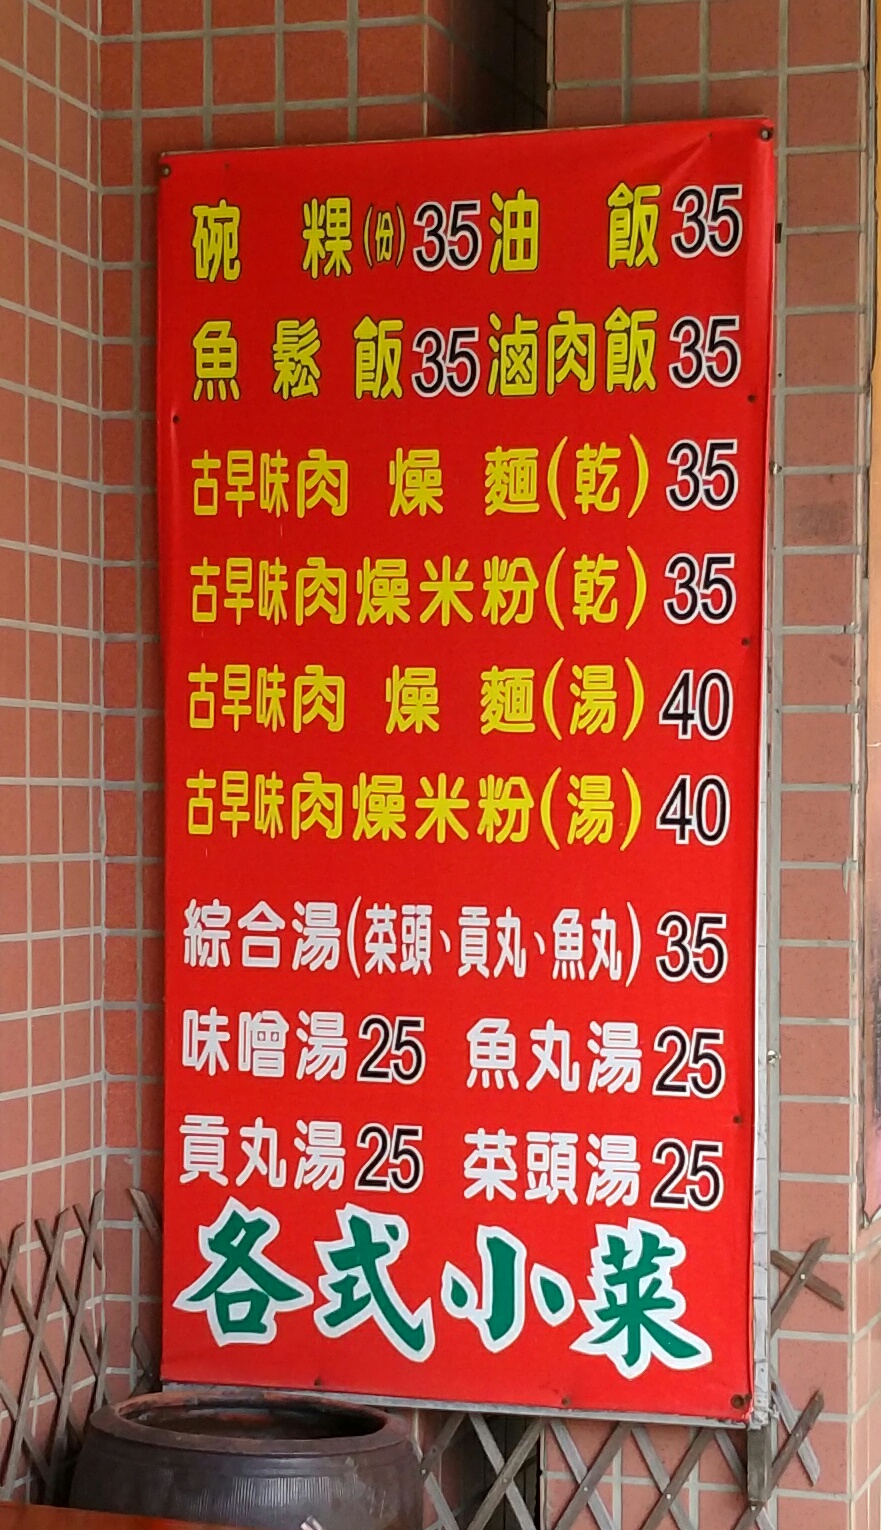 碗粿(份)35 油飯35
魚鬆飯35 滷肉飯35
古早味肉燥麵(乾) 35
古早味肉燥米粉(乾) 35
古早味肉燥麵(湯) 40
古早味肉燥米粉(湯) 40
綜合湯(菜頭、貢丸、魚丸) 35
味噌湯25 魚丸湯25
貢丸湯25 菜頭湯25
各式小菜